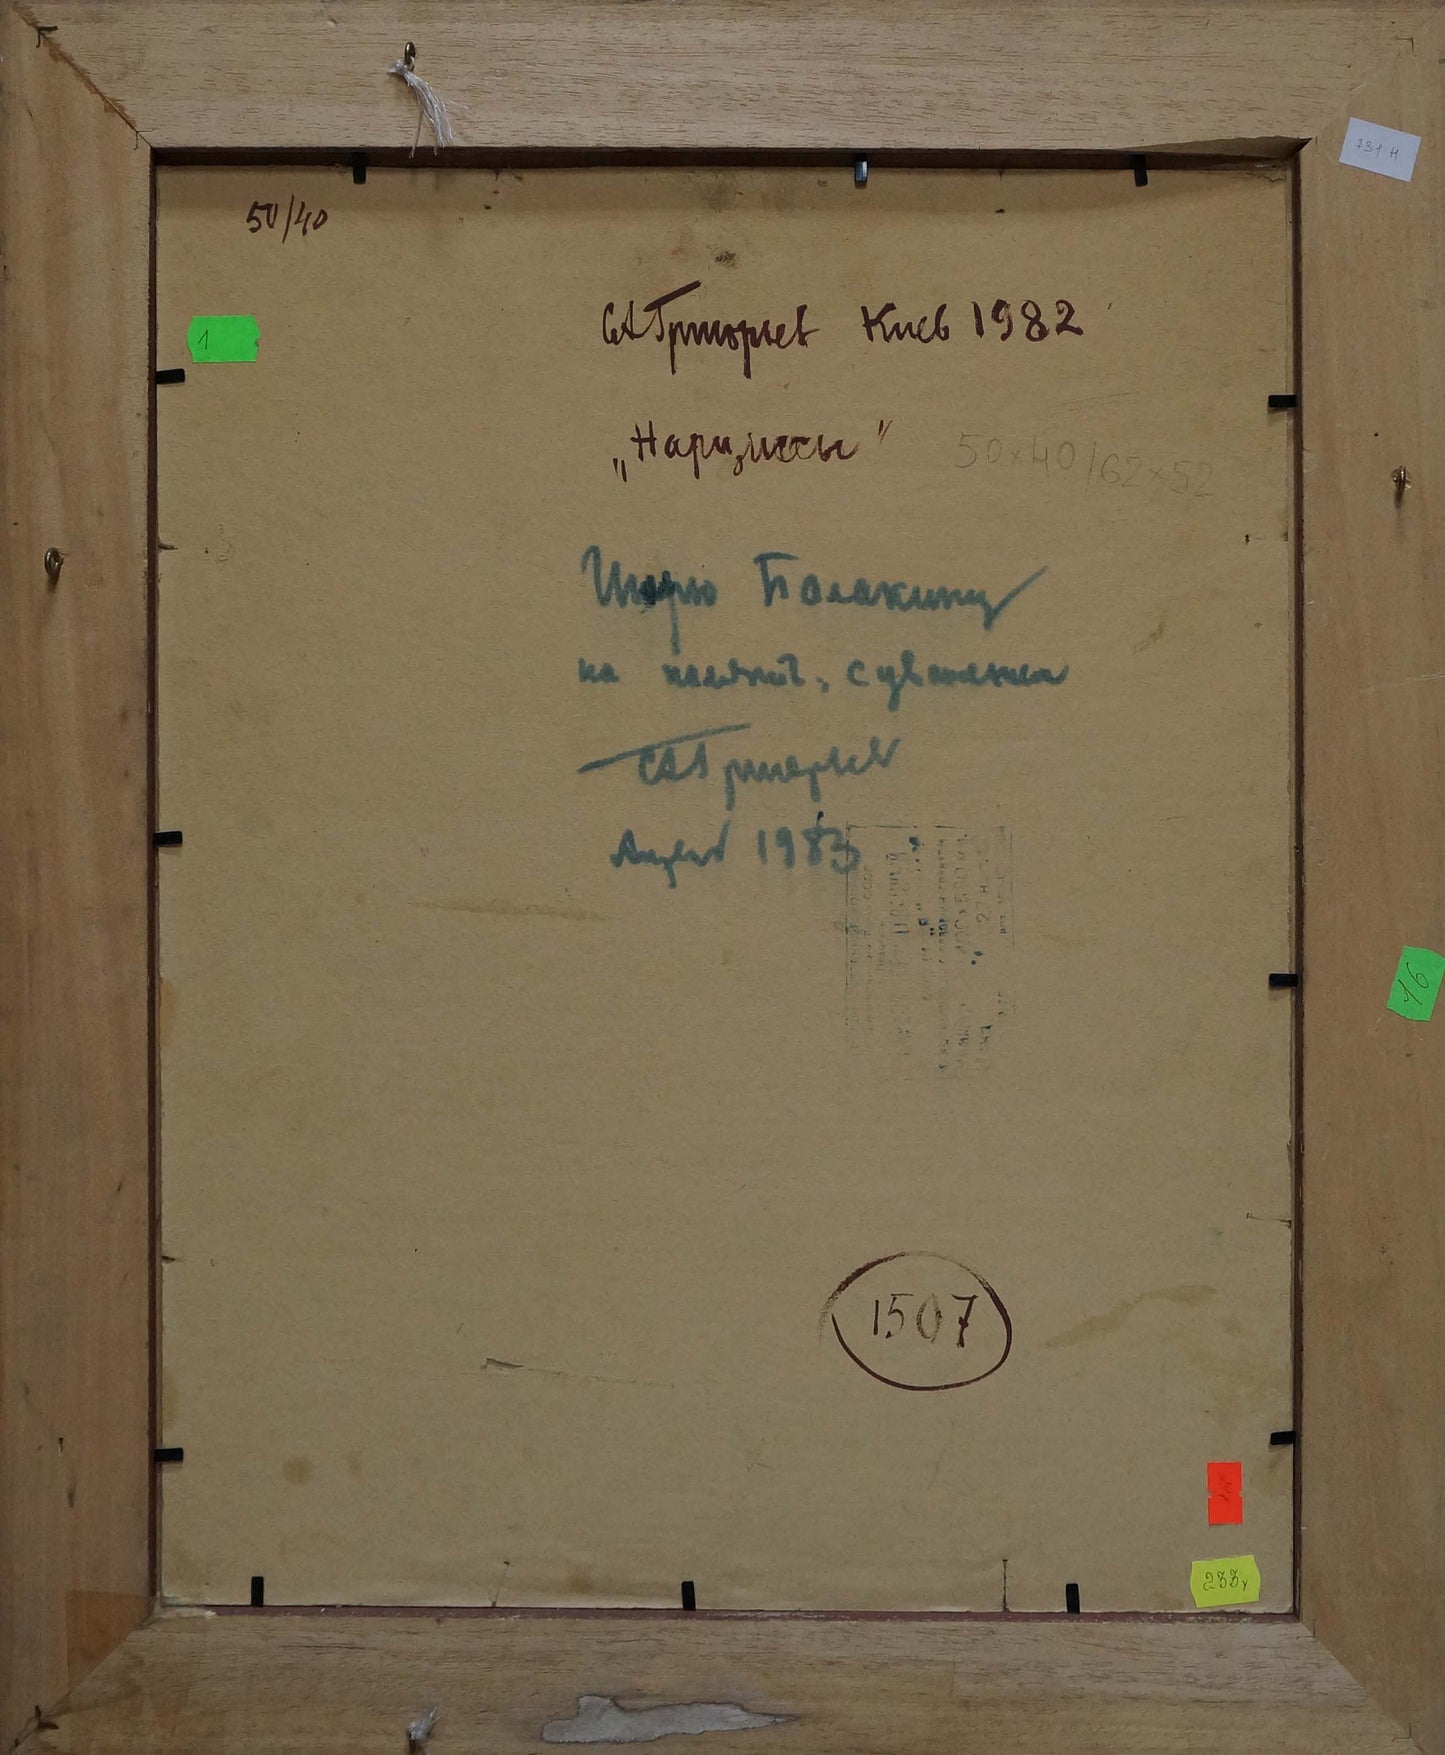 731 Н
50/40
СА Григорьев Киев 1982
1
„Нарциссы"
50х40/62х52
Игорю Балакину
на память, с уважением
СА Григорьев
Апрель 1983
16
1507
233у